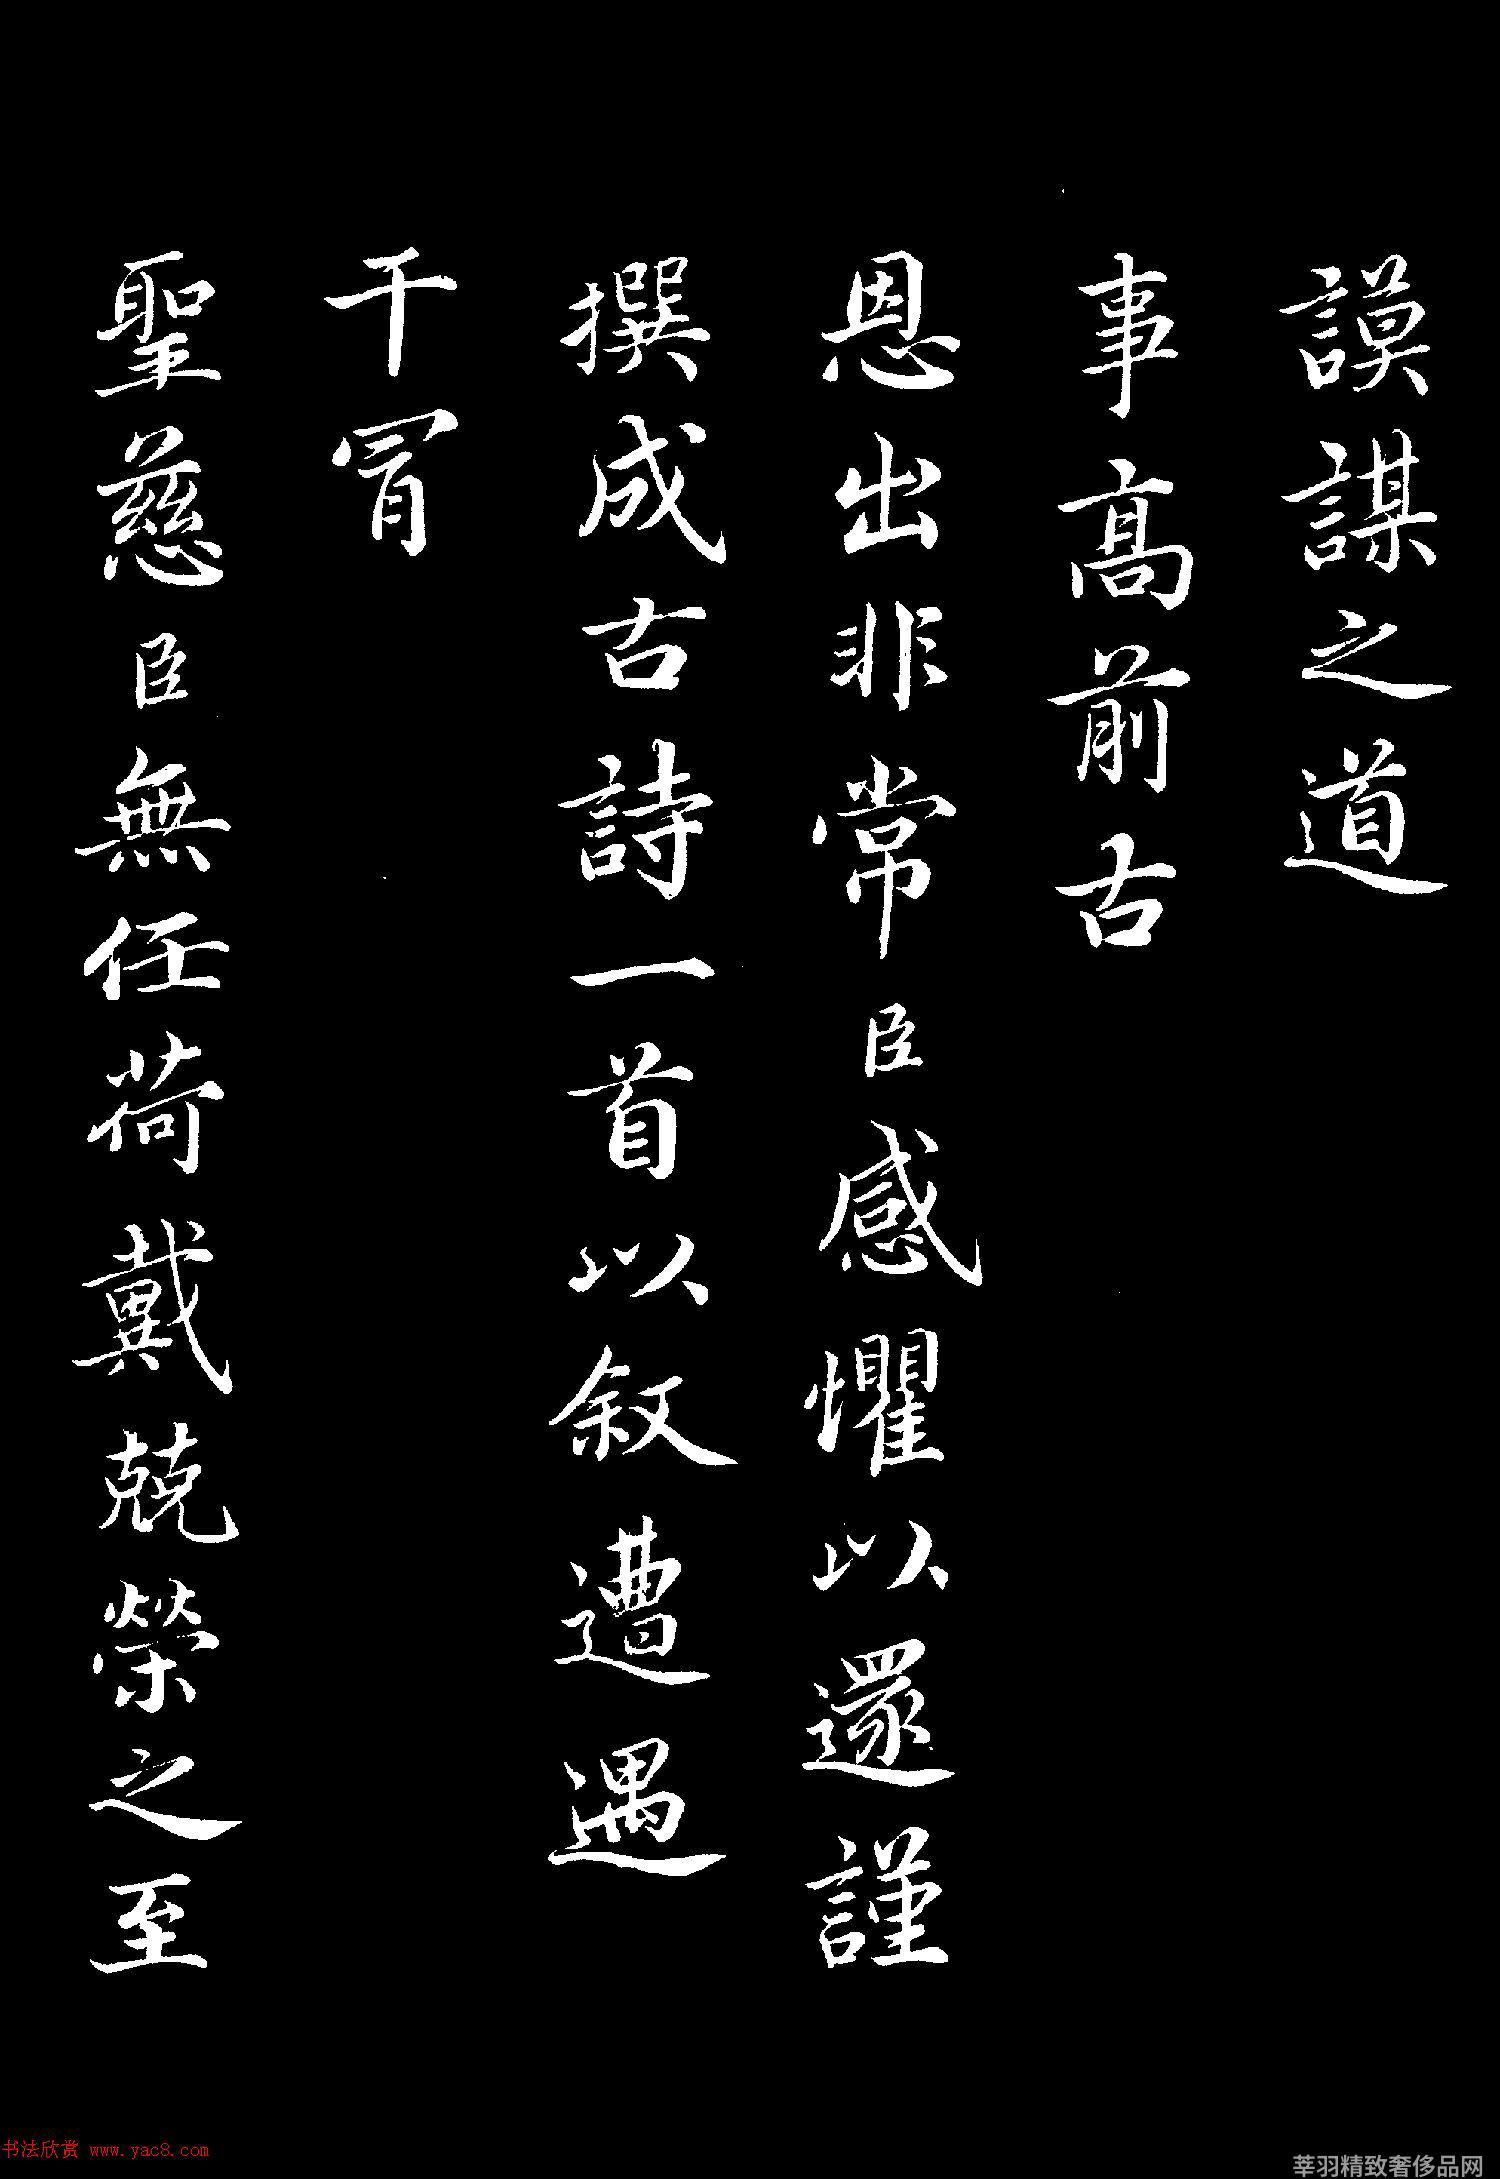 謨謀之道
事高前古
恩出非常臣感懼以還謹
撰成古詩一首以叙遭遇
干冒
聖慈臣無任荷戴兢榮之至
书法欣赏 www.yac8.com
莘羽精致奢侈品网